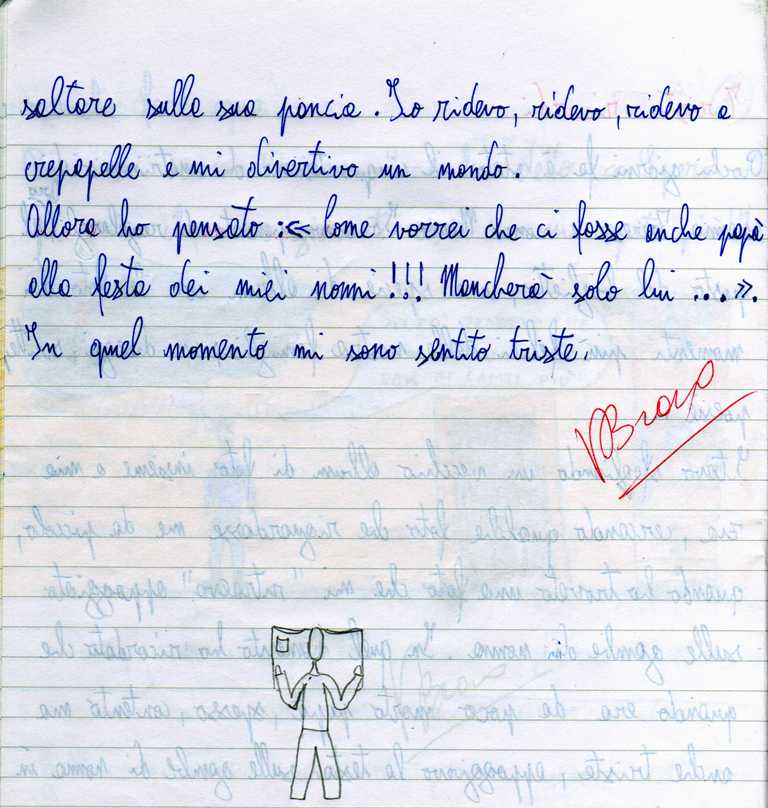 saltare sulla sua pancia. Io ridevo, ridevo, ridevo a
crepapelle e mi divertivo un mondo.
Allora ho pensato :« Come vorrei che ci fosse anche papà
alla festa dei miei nonni!!! Mancherà solo lui ...».
In quel momento mi sono sentito triste.
Bravo